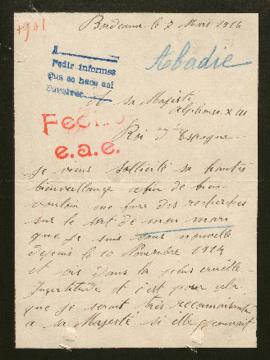 Bordeaux le 2 Mars 1916
Abadie
A
Pedir informes
que se hace así
A sa Majesté
Alphonse XIII
Roi d'Espagne
e.a.e.
Je vous sollicite sa haute
bienveillance afin de bien
vouloir me faire des recherches
sur le sort de mon mari
que je suis sans nouvelle
depuis le 10 Novembre 1914
et vis dans la plus cruelle
incertitude et c'est pour cela
que je serais très reconnaissante
a sa Majesté si elle pouvait